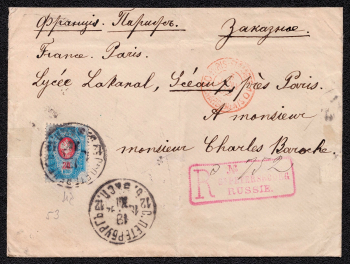 Франція. Парижъ. Заказное.
France. Paris.
Lycée Lakanal, Sceaux, près Paris.
A monsieur
monsieur Charles Baroche.
№ 752
R
RUSSIE.
С.ПЕТЕРБУРГЪ
13
XII
53